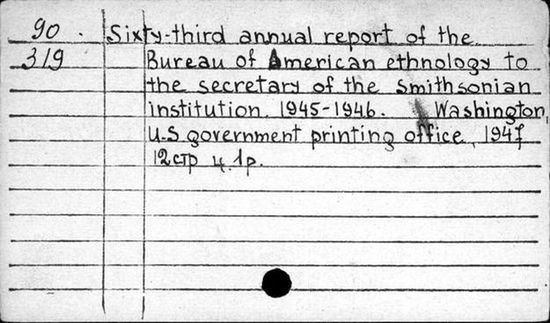 90 . Sixty-third annual report of the
319 Bureau of American ethnology to
the secretary of the Smithsonian
institution, 1945-1946. Washington,
U.S government printing office, 1947
12стр ц. 1р.